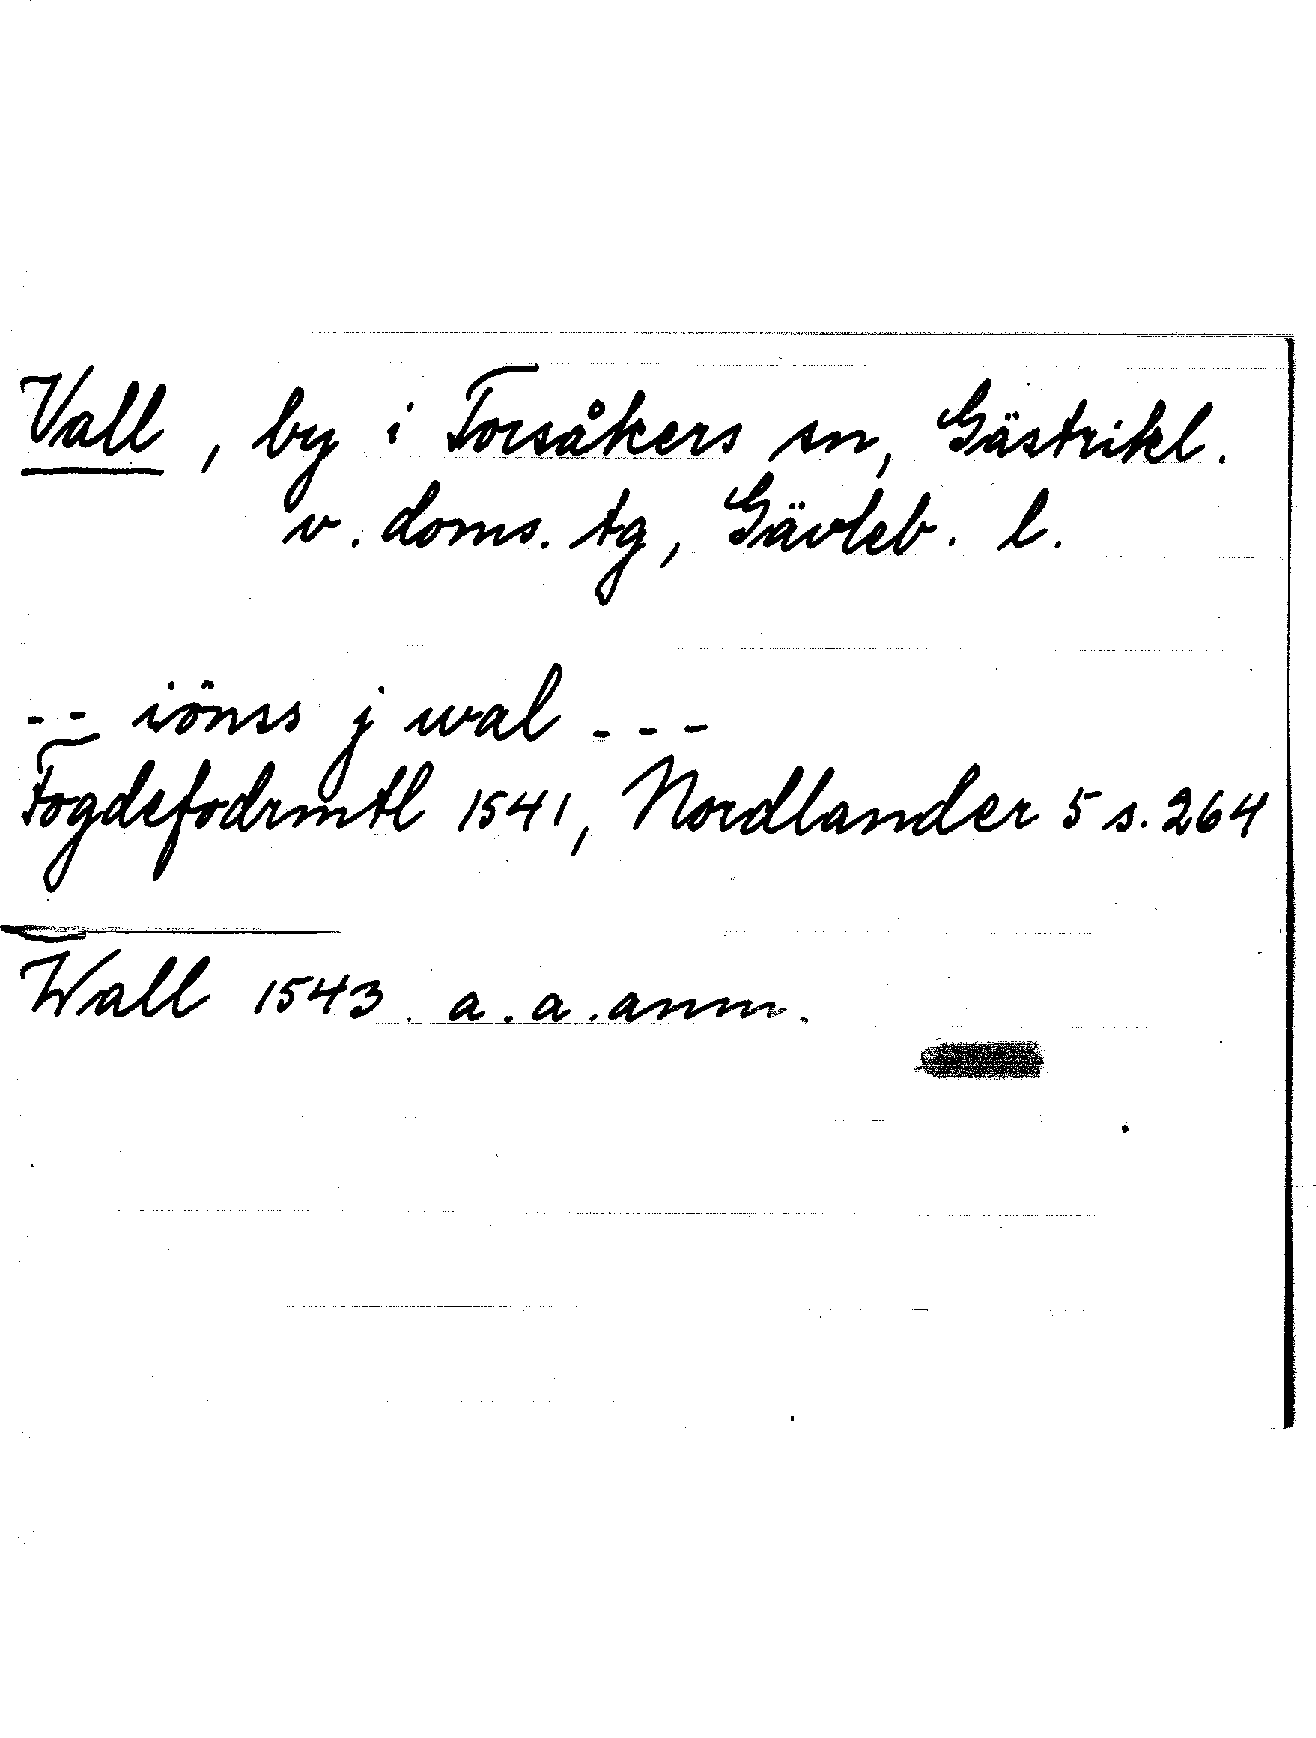 Vall, by i Torsåkers sn, Gästrikl.
v. doms. tg, Gävleb. l.
-- iönss j wal ---
Fogdefodrmtl 1541, Nordlander 5 s. 264
Wall 1543. a. a. anm.